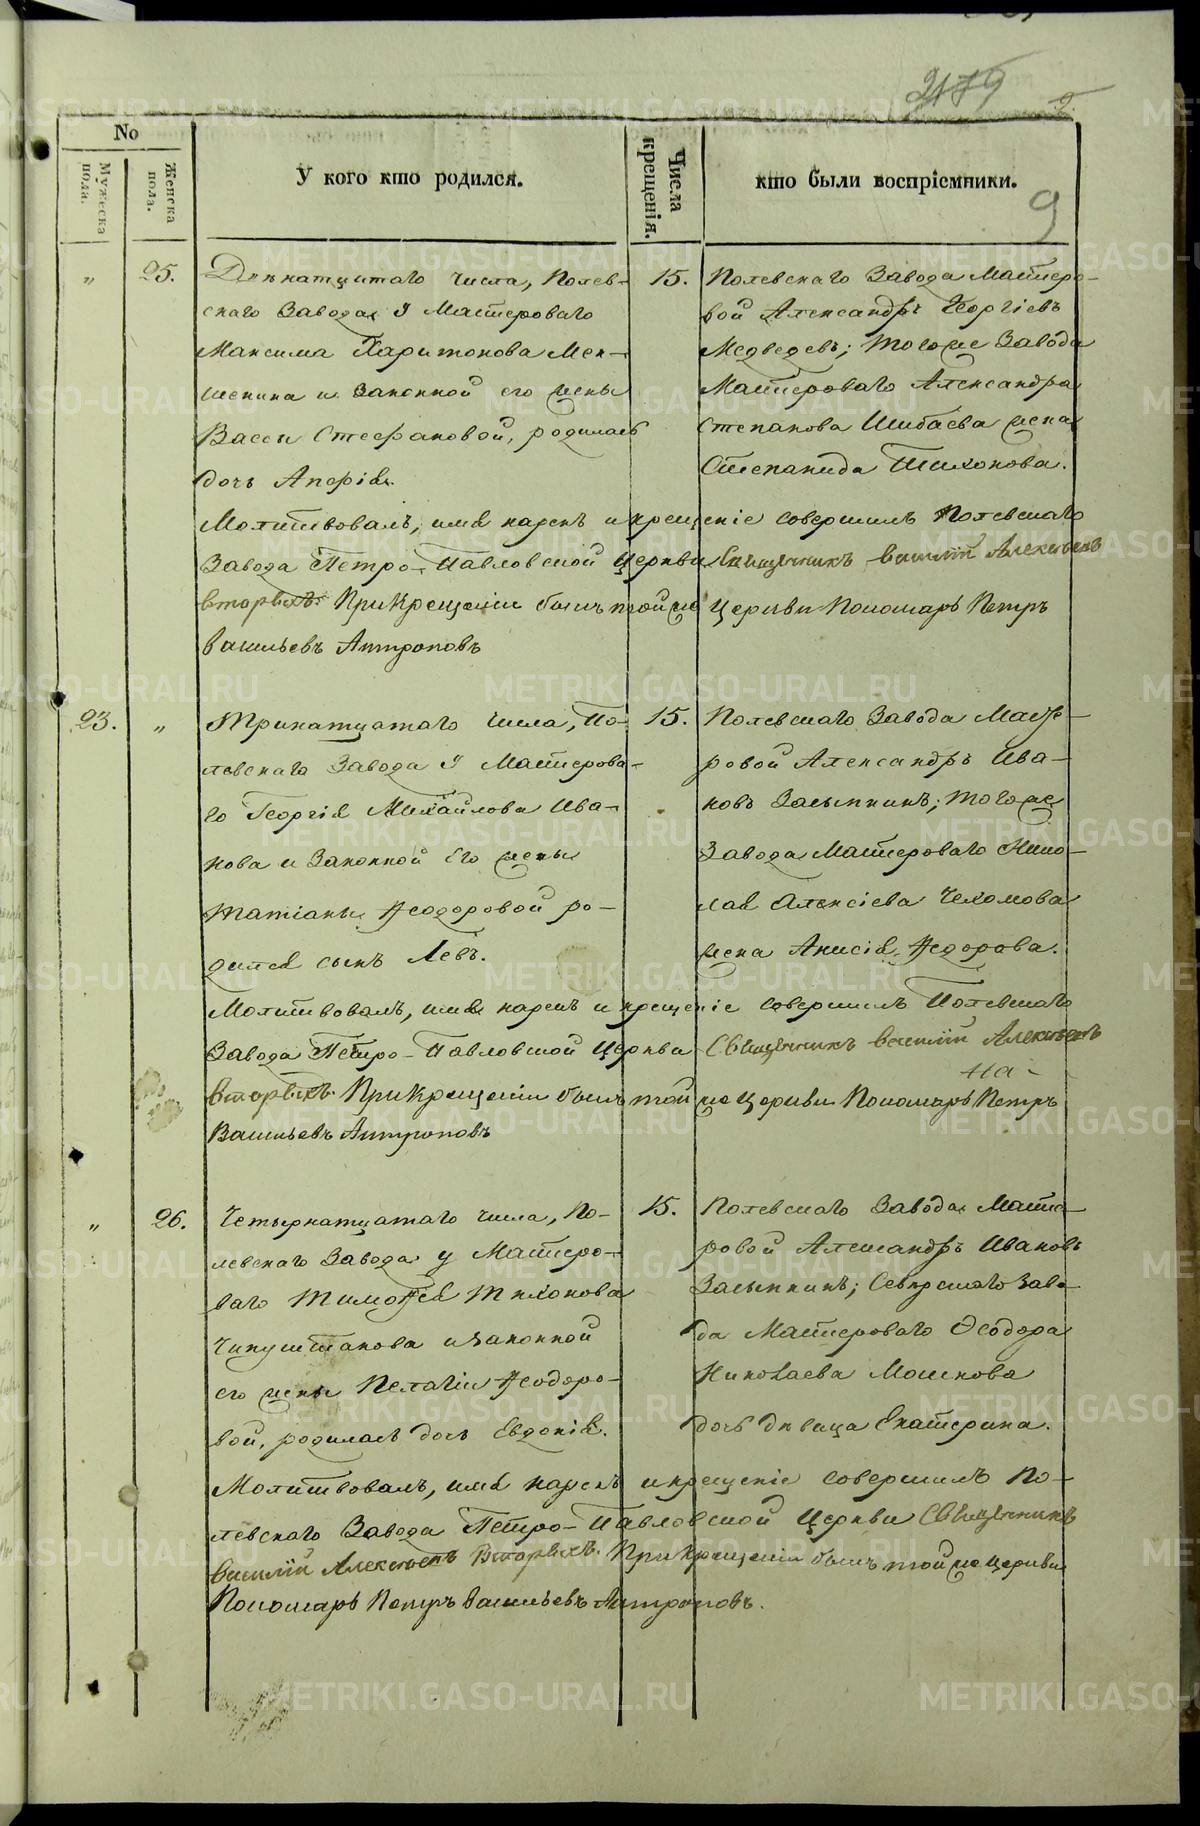 9
No
Мужеска пола.
Женска пола.
У кого кто родился.
Числа крещенія.
кто были воспріемники.
„ 25. Двѣнатцатаго числа, Полев-
скаго Завода у Мастероваго
Максима Харитонова Мен-
шенина и Законной его жены
Вассы Стефановой, родилась
дочь Апфія.
15. Полевскаго Завода Мастеро-
вой Александръ Георгіевъ
Медведевъ; тогоже Завода
Мастероваго Александра
Степанова Шибаева жена
Степанида Тихонова.
Молитвовалъ, имя нарекъ и крещеніе совершилъ Полевскаго
Завода Петро-Павловской Церкви Священникъ Василій Алексѣевъ
Вторыхъ. При Крещеніи былъ тойже Церкви Пономарь Петръ
Васильевъ Антроповъ
23. „ Тринатцатаго числа, По-
левскаго Завода у Мастерова-
го Георгія Михайлова Ива-
нова и Законной Его жены
Татіаны Ѳеодоровой ро-
дился сынъ Левъ.
15. Полевскаго Завода Масте-
ровой Александръ Ива-
новъ Засыпкинъ; тогоже
Завода Мастероваго Нико-
лая Алексіева Чехомова
жена Анисія Ѳедорова.
Молитвовалъ, имя нарекъ и крещеніе совершилъ Полевскаго
Завода Петро-Павловской Церкви Священникъ Василій Алексѣевъ
Вторыхъ. При Крещеніи былъ тойже Церкви Пономарь Петръ
Васильевъ Антроповъ
„ 26. Четырнатцатаго числа, По-
левскаго Завода у Мастеро-
ваго Тимоѳея Тихонова
Чипуштанова и законной
его жены Пелагіи Ѳеодоро-
вой, родилась дочь Евдокія.
15. Полевскаго Завода Масте-
ровой Александръ Ивановъ
Засыпкинъ; Сѣверскаго Заво-
да Мастероваго Ѳеодора
Николаева Мошкова
дочь дѣвица Екатерина.
Молитвовалъ, имя нарекъ и крещеніе совершилъ По-
левскаго Завода Петро-Павловской Церкви Священникъ
Василій Алексѣевъ Вторыхъ. При Крещеніи былъ тойже церкви
Пономарь Петръ Васильевъ Антроповъ.
METRIKI.GASO-URAL.RU